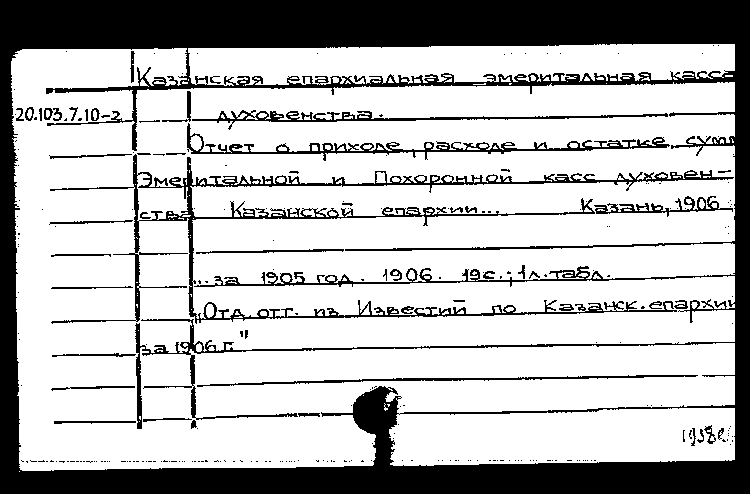 Казанская епархиальная эмеритальная касса
20.103.7.10-2 духовенства.
Отчет о приходе, расходе и остатке сумм
Эмеритальной и Похоронной касс духовен-
ства Казанской епархии... Казань, 1906
...за 1905 год. 1906. 19с.; 1л. табл.
„Отд. отт. из Известий по Казанск. епархии
за 1906 г."